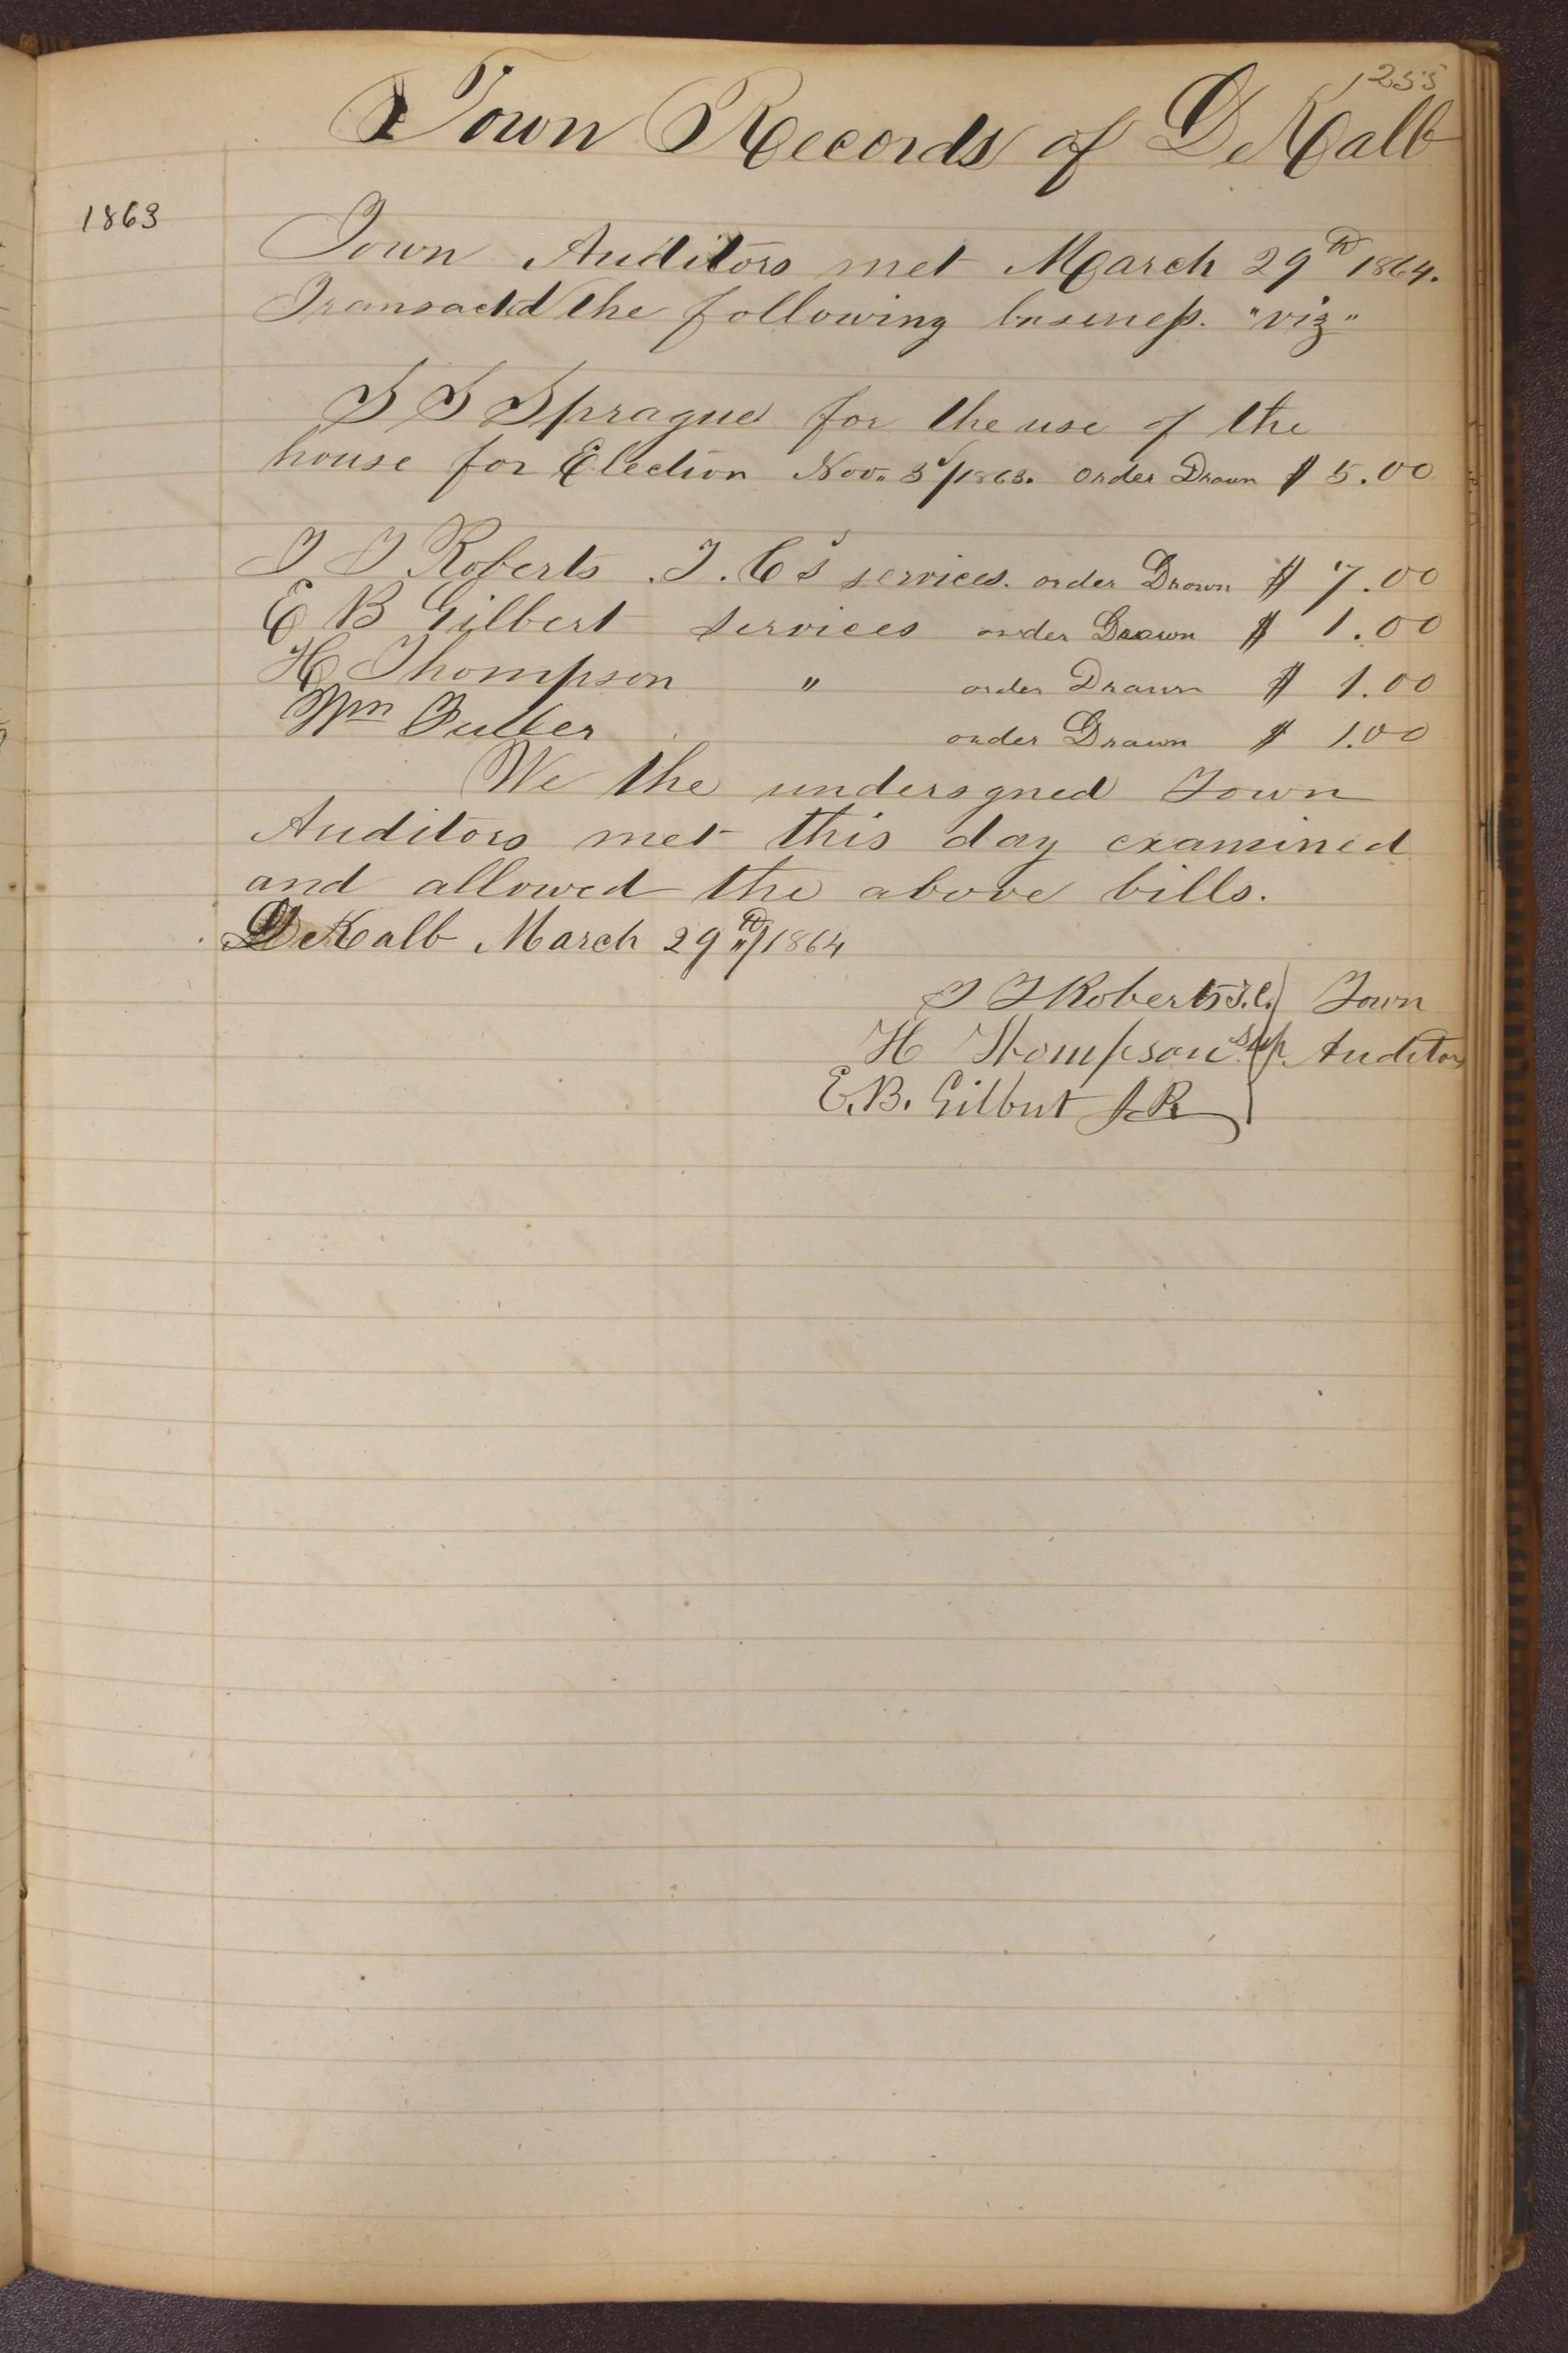 255
Town Records of DeKalb
1863
Town Auditors met March 29th 1864.
Transactd the following business. "viz"
S S Sprague for the use of the
house for Election Nov. 3d/1863. order Drawn $ 5.00
T T Roberts T. C's services. order Drawn $ 7.00
E B Gilbert services order Drawn $ 1.00
H Thompson " order Drawn $ 1.00
Wm Fuller order Drawn $ 1.00
We the undersgned Town
Auditors met this day examined
and allowed the above bills.
DeKalb March 29th/1864
T T Roberts T.C. } Town
H Thompson Sup. Auditors
E. B. Gilbert